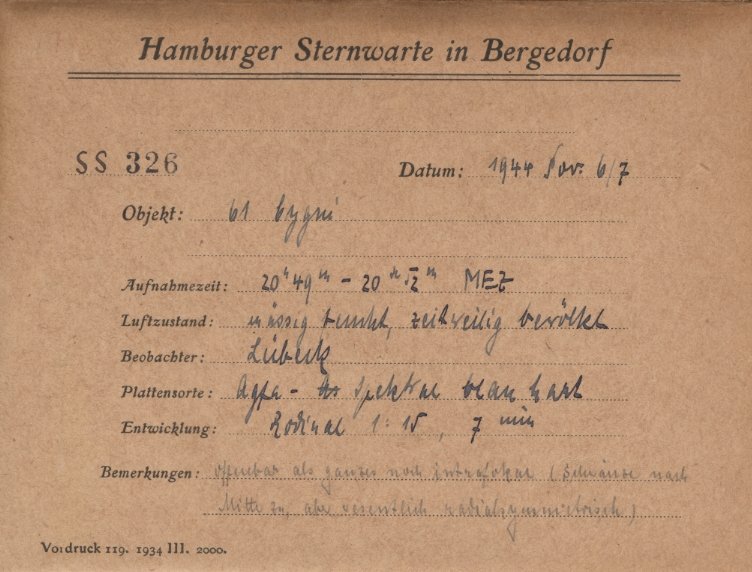 Hamburger Sternwarte in Bergedorf
SS 326
Datum: 1944 Nov. 6/7
Objekt: 61 Cygni
Aufnahmezeit: 20ʰ49ᵐ – 20ʰ52ᵐ MEZ
Luftzustand: mässig feucht, zeitweilig bewölkt
Beobachter: Lübeck
Plattensorte: Agfa – Spektral blau hart
Entwicklung: Rodinal 1:15, 7 min
Bemerkungen: Offenbar als ganzes noch intrafokal (Schwänze nach
Mitte zu, aber wesentlich radialsymmetrisch)
Vordruck 119. 1934 III. 2000.